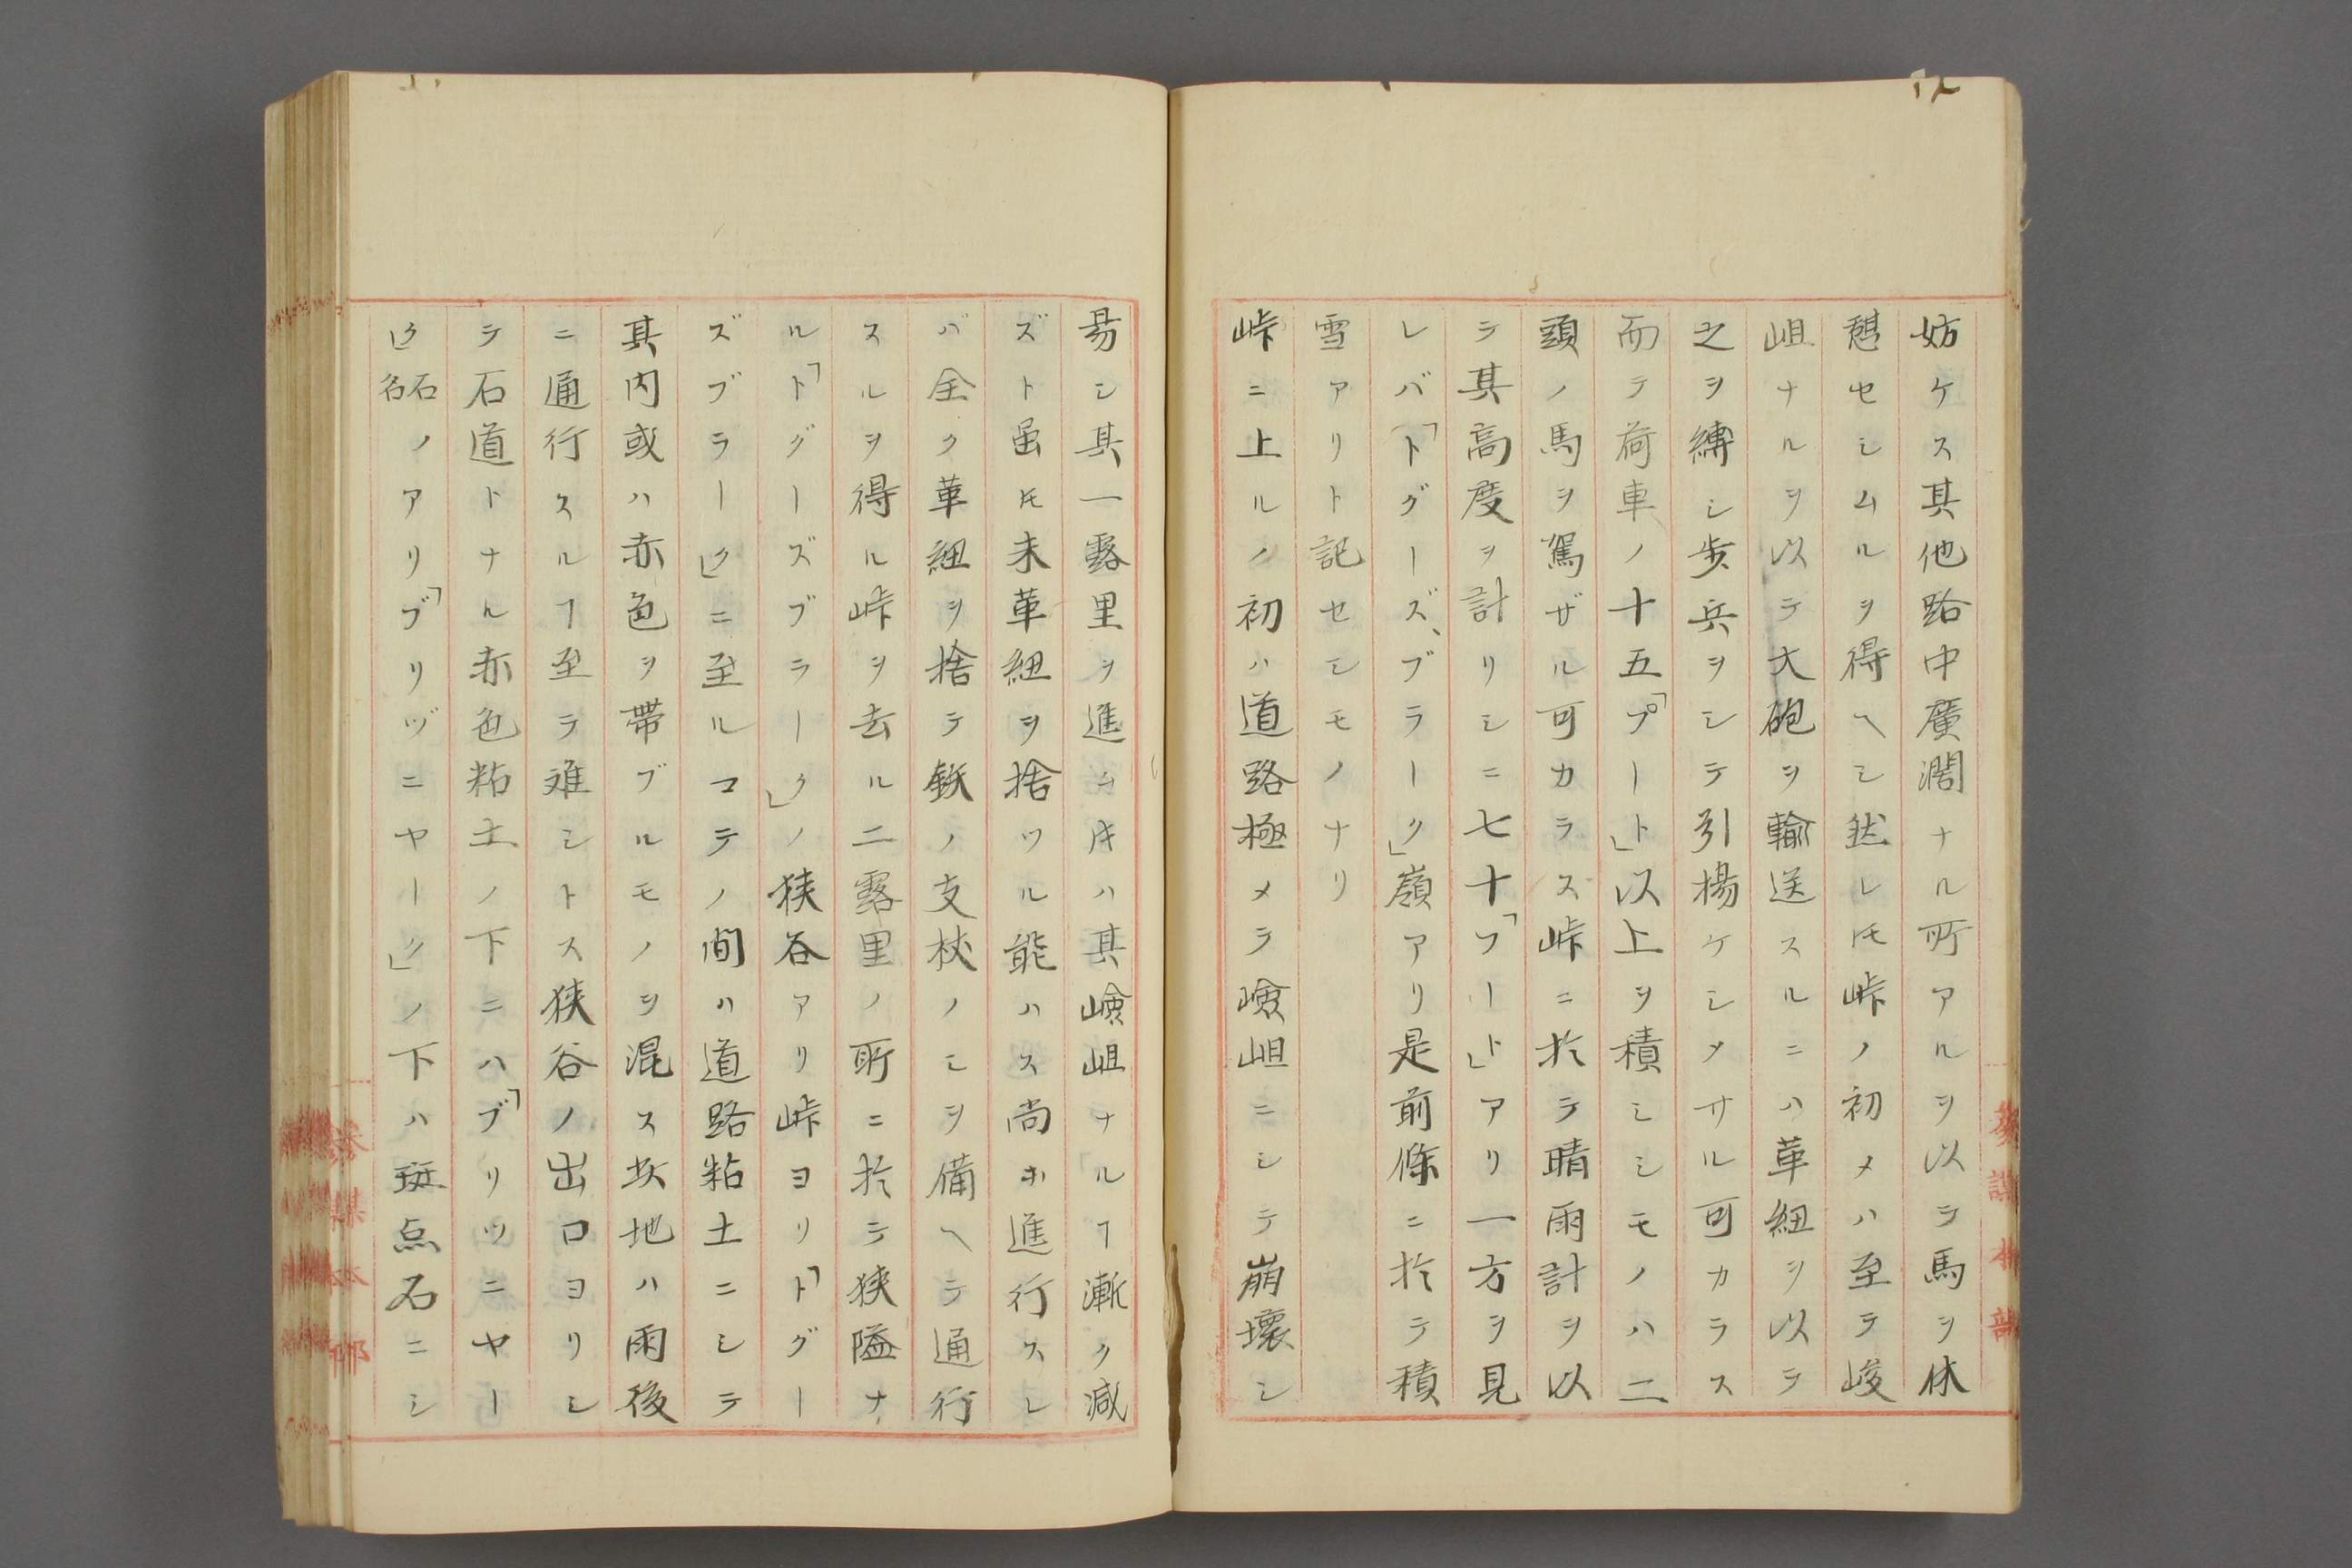 妨ケス其他路中廣濶ナル所アルヲ以テ馬ヲ休
憇セシムルヲ得ヘシ然レ𪜈峠ノ初メハ至テ峻
岨ナルヲ以テ大砲ヲ輸送スルニハ革紐ヲ以テ
之ヲ縛シ歩兵ヲシテ引揚ケシメサル可カラス
而テ荷車ノ十五「プート」以上ヲ積ミシモノハ二
頭ノ馬ヲ駕ザル可カラス峠ニ於テ晴雨計ヲ以
テ其高度ヲ計リシニ七十「フート」アリ一方ヲ見
レバ「トグーズ、ブラーク」嶺アリ是前條ニ於テ積
雪アリト記セシモノナリ
峠ニ上ルノ初ハ道路極メテ嶮岨ニシテ崩壞シ
昜シ其一露里ヲ進ミ𬼀ハ其嶮岨ナルヿ漸ク减
ズト虽𪜈未革紐ヲ捨ツル能ハス尚ホ進行スレ
バ全ク革紐ヲ捨テ鉄ノ支杖ノミヲ備ヘテ通行
スルヲ得ル峠ヲ去ル二露里ノ所ニ於テ狭隘ナ
ル「トグーズブラーク」ノ狭谷アリ峠ヨリ「トグー
ズブラーク」ニ至ルマテノ間ハ道路粘土ニシテ
其内或ハ赤色ヲ帶ブルモノヲ混ス坎地ハ雨後
ニ通行スルヿ至テ难シトス狭谷ノ出口ヨリシ
テ石道トナル赤色粘土ノ下ニハ「ブリツニヤー
ク」石名ノアリ「ブリヅニヤーク」ノ下ハ斑点石ニシ
參謀本部
參謀本部